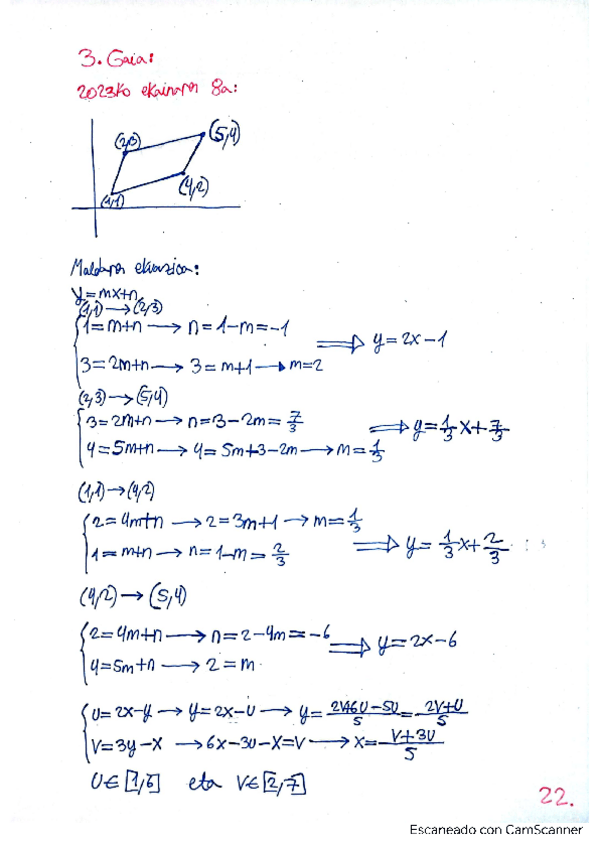 3. Gaia:
2023ko ekainaren 8a:
(2,3)
(5,4)
(4,2)
(1,1)
Maldaren ekuazioa:
y=mx+n
(1,1)→(2,3)
1=m+n → n=1-m=-1
⇒ y=2x-1
3=2m+n → 3=m+1 → m=2
(2,3)→(5,4)
3=2m+n → n=3-2m=7/3
⇒ y=1/3x+7/3
4=5m+n → 4=5m+3-2m → m=1/3
(1,1)→(4,2)
2=4m+n → 2=3m+1 → m=1/3
⇒ y=1/3x+2/3
1=m+n → n=1-m=2/3
(4,2)→(5,4)
2=4m+n → n=2-4m=-6
⇒ y=2x-6
4=5m+n → 2=m
U=2x-y → y=2x-U → y=2V+6U-5U/5=2V+U/5
V=3y-x → 6x-3U-x=V → x=V+3U/5
U∈[1,6] eta V∈[2,7]
22.
Escaneado con CamScanner